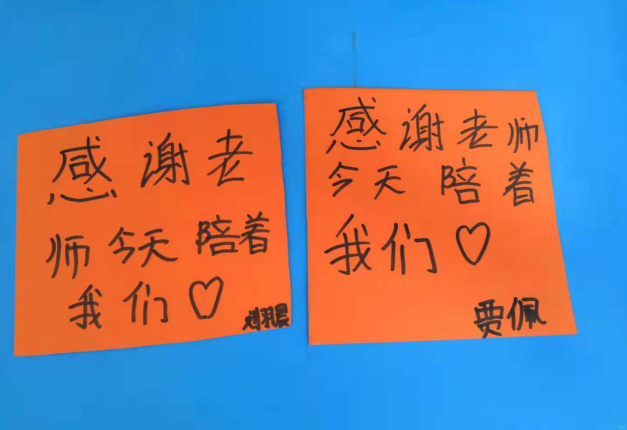 感谢老
师今天陪着
我们♡
感谢老师
今天陪着
我们♡
贾佩